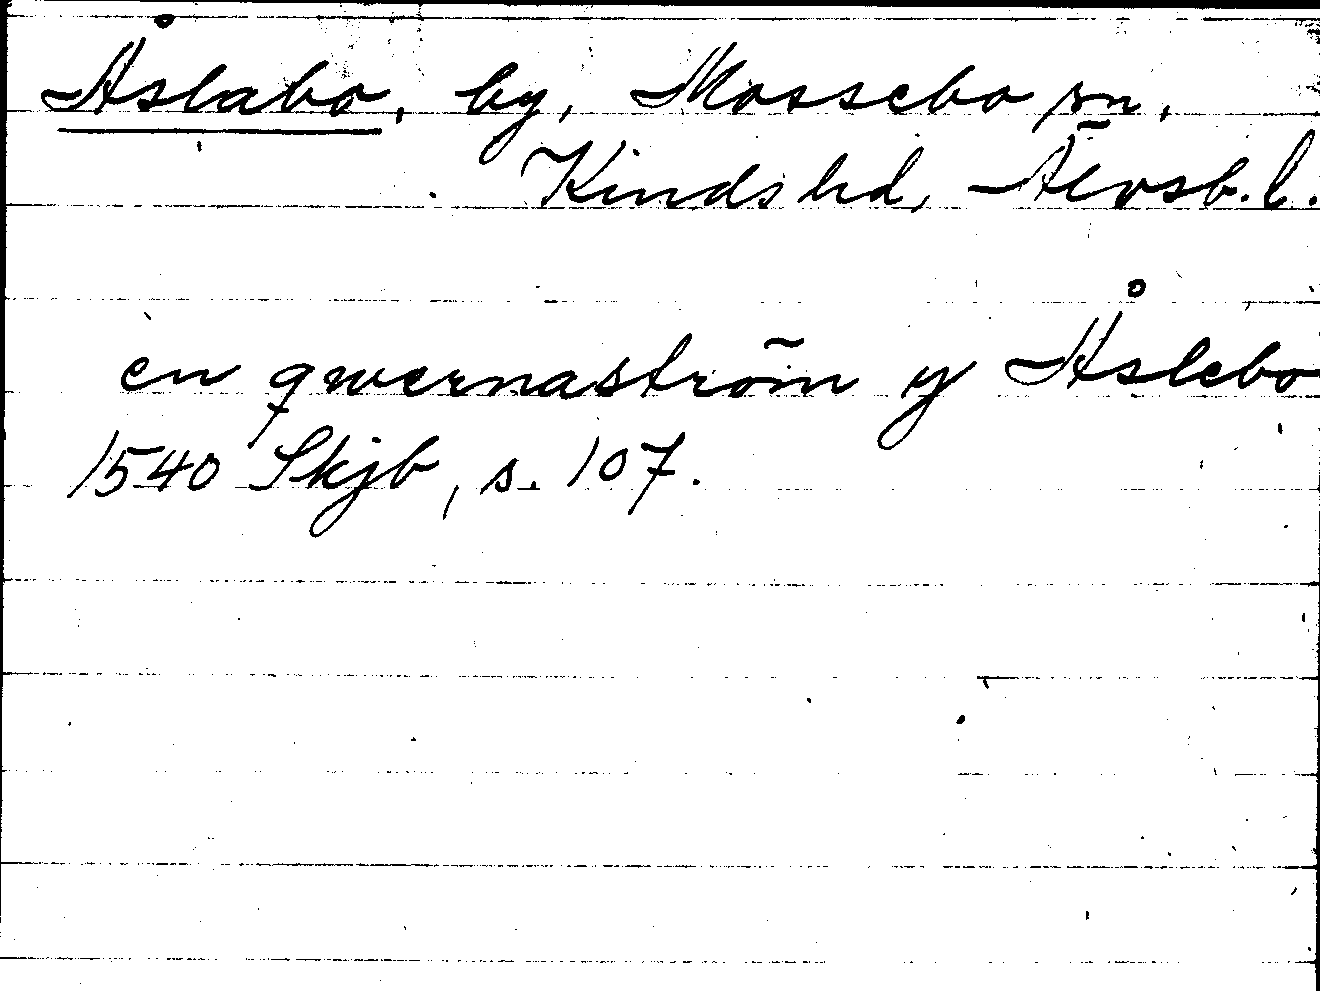 Åslabo, by, Mossebo sn,
Kinds hd, Älvsb. l.
en qwernaström y Åslebo
1540 Skjb, s. 107.